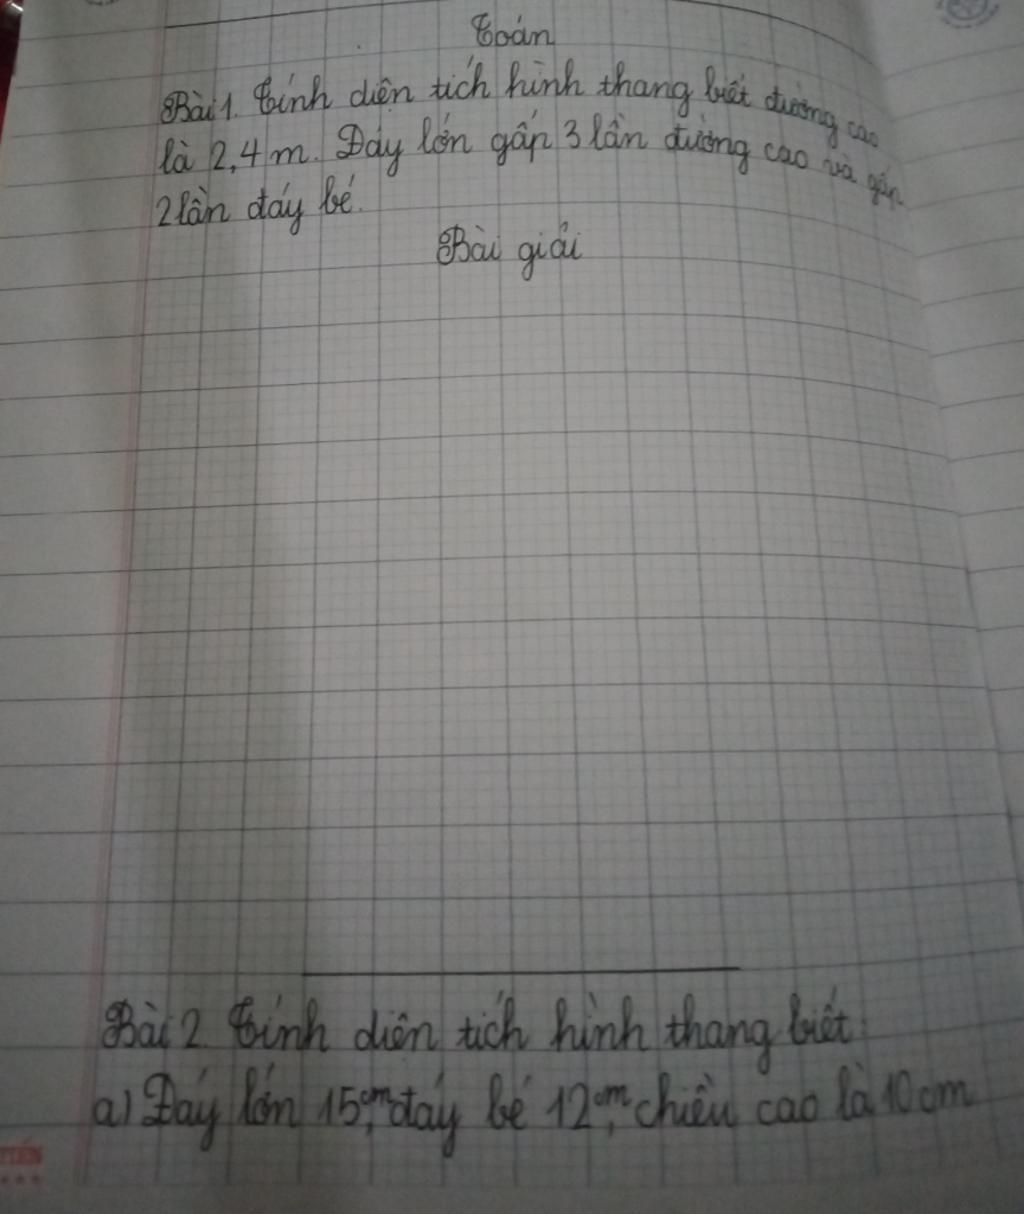 Toán
Bài 1. Tính diện tích hình thang biết đường cao
là 2,4 m. Đáy lớn gấp 3 lần đường cao và gấp
2 lần đáy bé.
Bài giải
Bài 2 Tính diện tích hình thang biết:
a) Đáy lớn 15cm, đáy bé 12cm, chiều cao là 10 cm